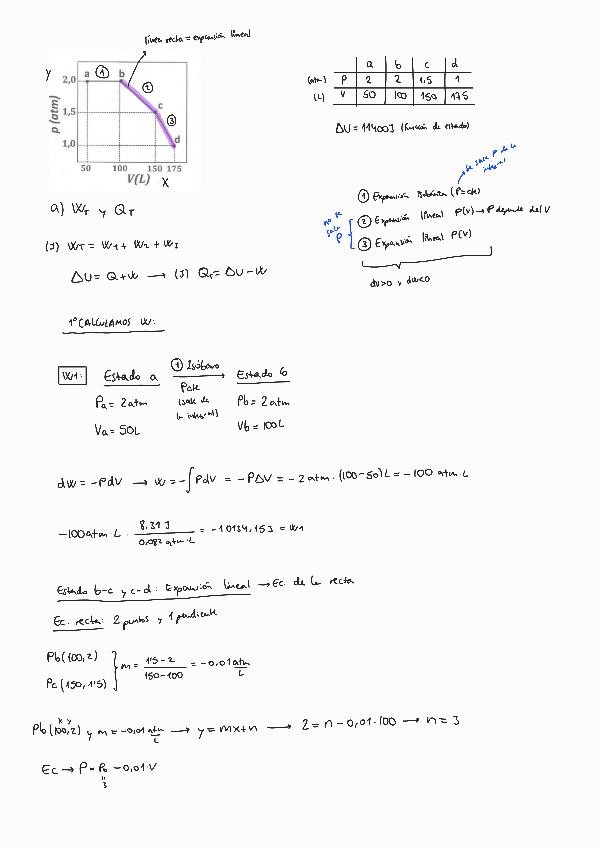 línea recta = expansión lineal
y
2,0 a ① b
② 
1,5 c
③
1,0 d
p (atm)
50 100 150 175
V(L) X
a b c d
(atm) P 2 2 1,5 1
(L) V 50 100 150 175
ΔU = 11400J (función de estado)
se sale P de la integral
① Expansión Isobárica (P=cte)
no se sale P
② Expansión lineal P(V) → P depende del V
③ Expansión lineal P(V)
dV>0 y dW<0
a) WT y QT
(J) WT = W1 + W2 + W3
ΔU = Q+W → (J) QT = ΔU - W
1º CALCULAMOS W:
W1: Estado a ① Isóbaro Estado b
Pa = 2 atm Pcte Pb = 2 atm
(sale de la integral)
Va = 50L Vb = 100L
dW = -PdV → W = -∫PdV = -PΔV = -2 atm · (100-50)L = -100 atm·L
-100 atm L · 8.31 J / 0,082 atm·L = -10134,15J = W1
Estado b-c y c-d: Expansión lineal → Ec. de la recta
Ec. recta: 2 puntos y 1 pendiente
Pb(100,2)
Pc(150,1'5)
m = 1'5-2 / 150-100 = -0,01 atm/L
x y
Pb(100,2) y m = -0,01 atm/L → y = mx+n → 2 = n - 0,01·100 → n = 3
Ec → P = P0 - 0,01·V
"
3